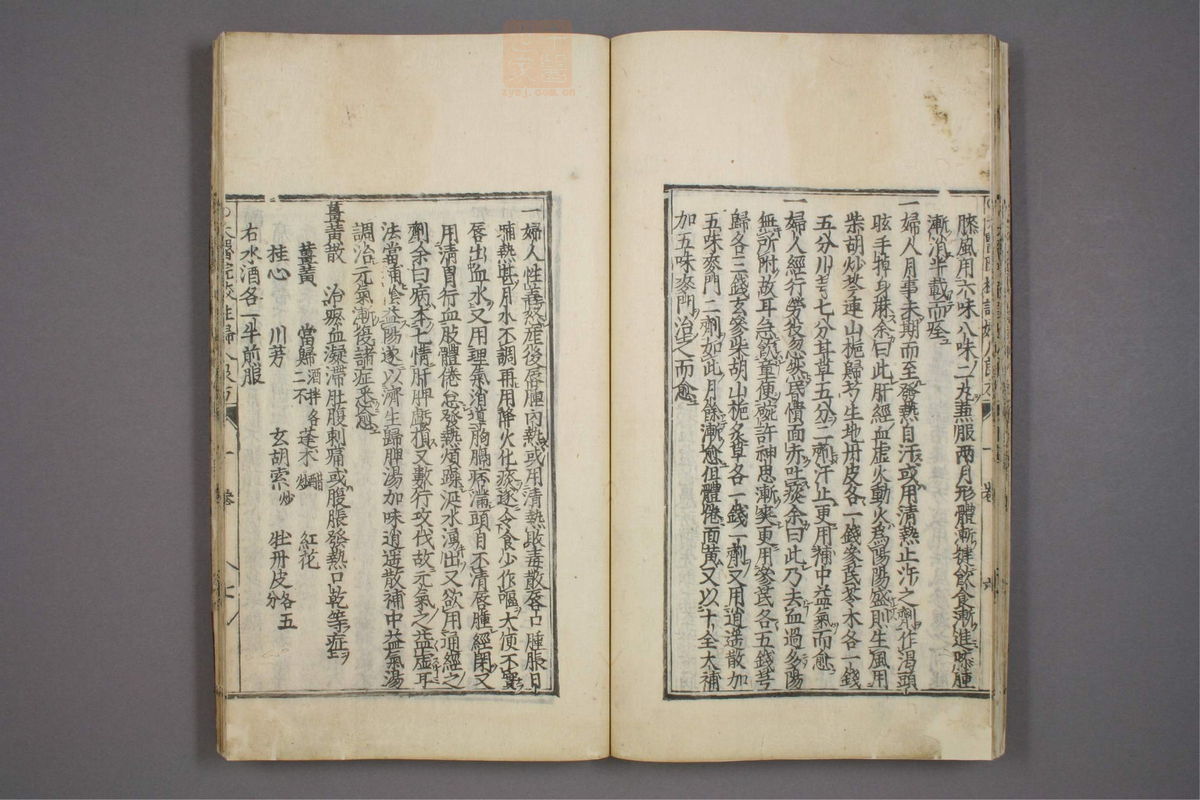 膝風用六味八味二丸兼服兩月形體漸健飲食漸進膝腫
漸消半載而痊
一婦人月事未期而至發熱自汗或用清熱止汗之劑作渴頭
眩手掉身麻余曰此肝經血虛火動火爲陽陽盛則生風用
柴胡炒芩連山梔歸芍生地丹皮各一錢參芪苓朮各一錢
五分川芎七分甘草五分二劑汗止更用補中益氣而愈
一婦人經行勞役忽然昏憒面赤吐痰余曰此乃去血過多陽
無所附故耳急飲童便碗許神思漸爽更用參芪各五錢芎
歸各三錢玄參柴胡山梔炙草各一錢一劑又用逍遥散加
五味麥門二劑如此月餘漸愈但體倦面黄又以十全大補
加五味麥門治之而愈
一婦人性善怒産後唇腫内熱或用清熱敗毒散唇口腫脹日
晡熱甚月水不調再用降火化痰遂令食少作嘔大便不實
唇出血水又用理氣消導胸膈痞滿頭目不清唇腫經閉又
用清胃行血肢體倦怠發熱煩躁涎水湧出又欲用通經之
劑余曰病本七情肝脾虧損又數行攻伐故元氣之益虛耳
法當補陰益陽遂以濟生歸脾湯加味逍遥散補中益氣湯
調治元氣漸復諸症悉愈
薑黄散 治瘀血凝滯肚腹刺痛或腹脹發熱口乾等症
薑黄 當歸酒拌各二不 蓬朮醋炒 紅花
桂心 川芎 玄胡索炒 牡丹皮各五分
右水酒各一半煎服
zysj.com.cn